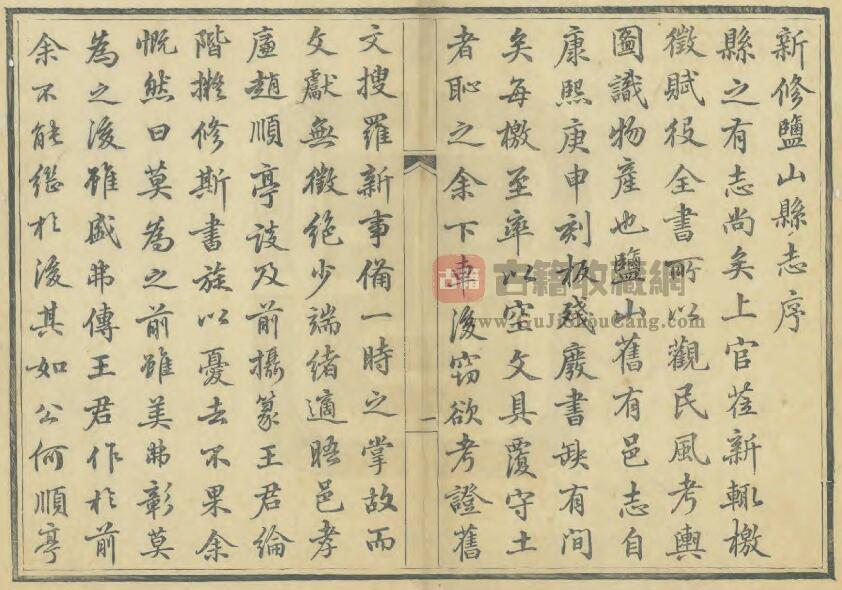 新修鹽山縣志序
縣之有志尚矣上官蒞新輒檄
徵賦役全書所以觀民風考輿
圖識物產也鹽山舊有邑志自
康熙庚申刻板殘廢書缺有間
矣每檄至率以空文具覆守土
者恥之余下車後竊欲考證舊
一
文搜羅新事備一時之掌故而
文獻無徵絕少端緒適晤邑孝
廉趙順亭談及前攝篆王君綸
階擬修斯書旋以憂去不果余
慨然曰莫為之前雖美弗彰莫
為之後雖盛弗傳王君作於前
余不能繼於後其如公何順亭
古籍 古籍收藏網
www.GuJiShouCang.com